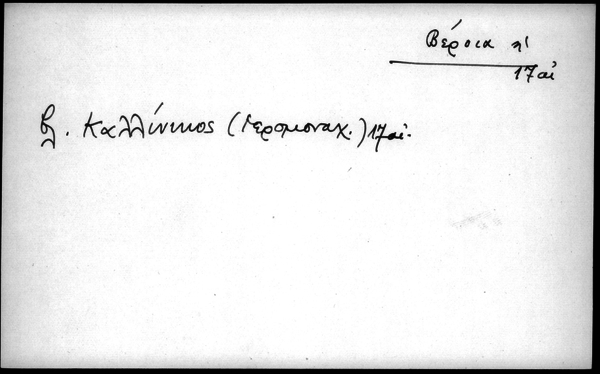 Βέροια
17 αἰ
βλ. Καλλίνικος (ἱερομοναχ.) 17 αἰ.